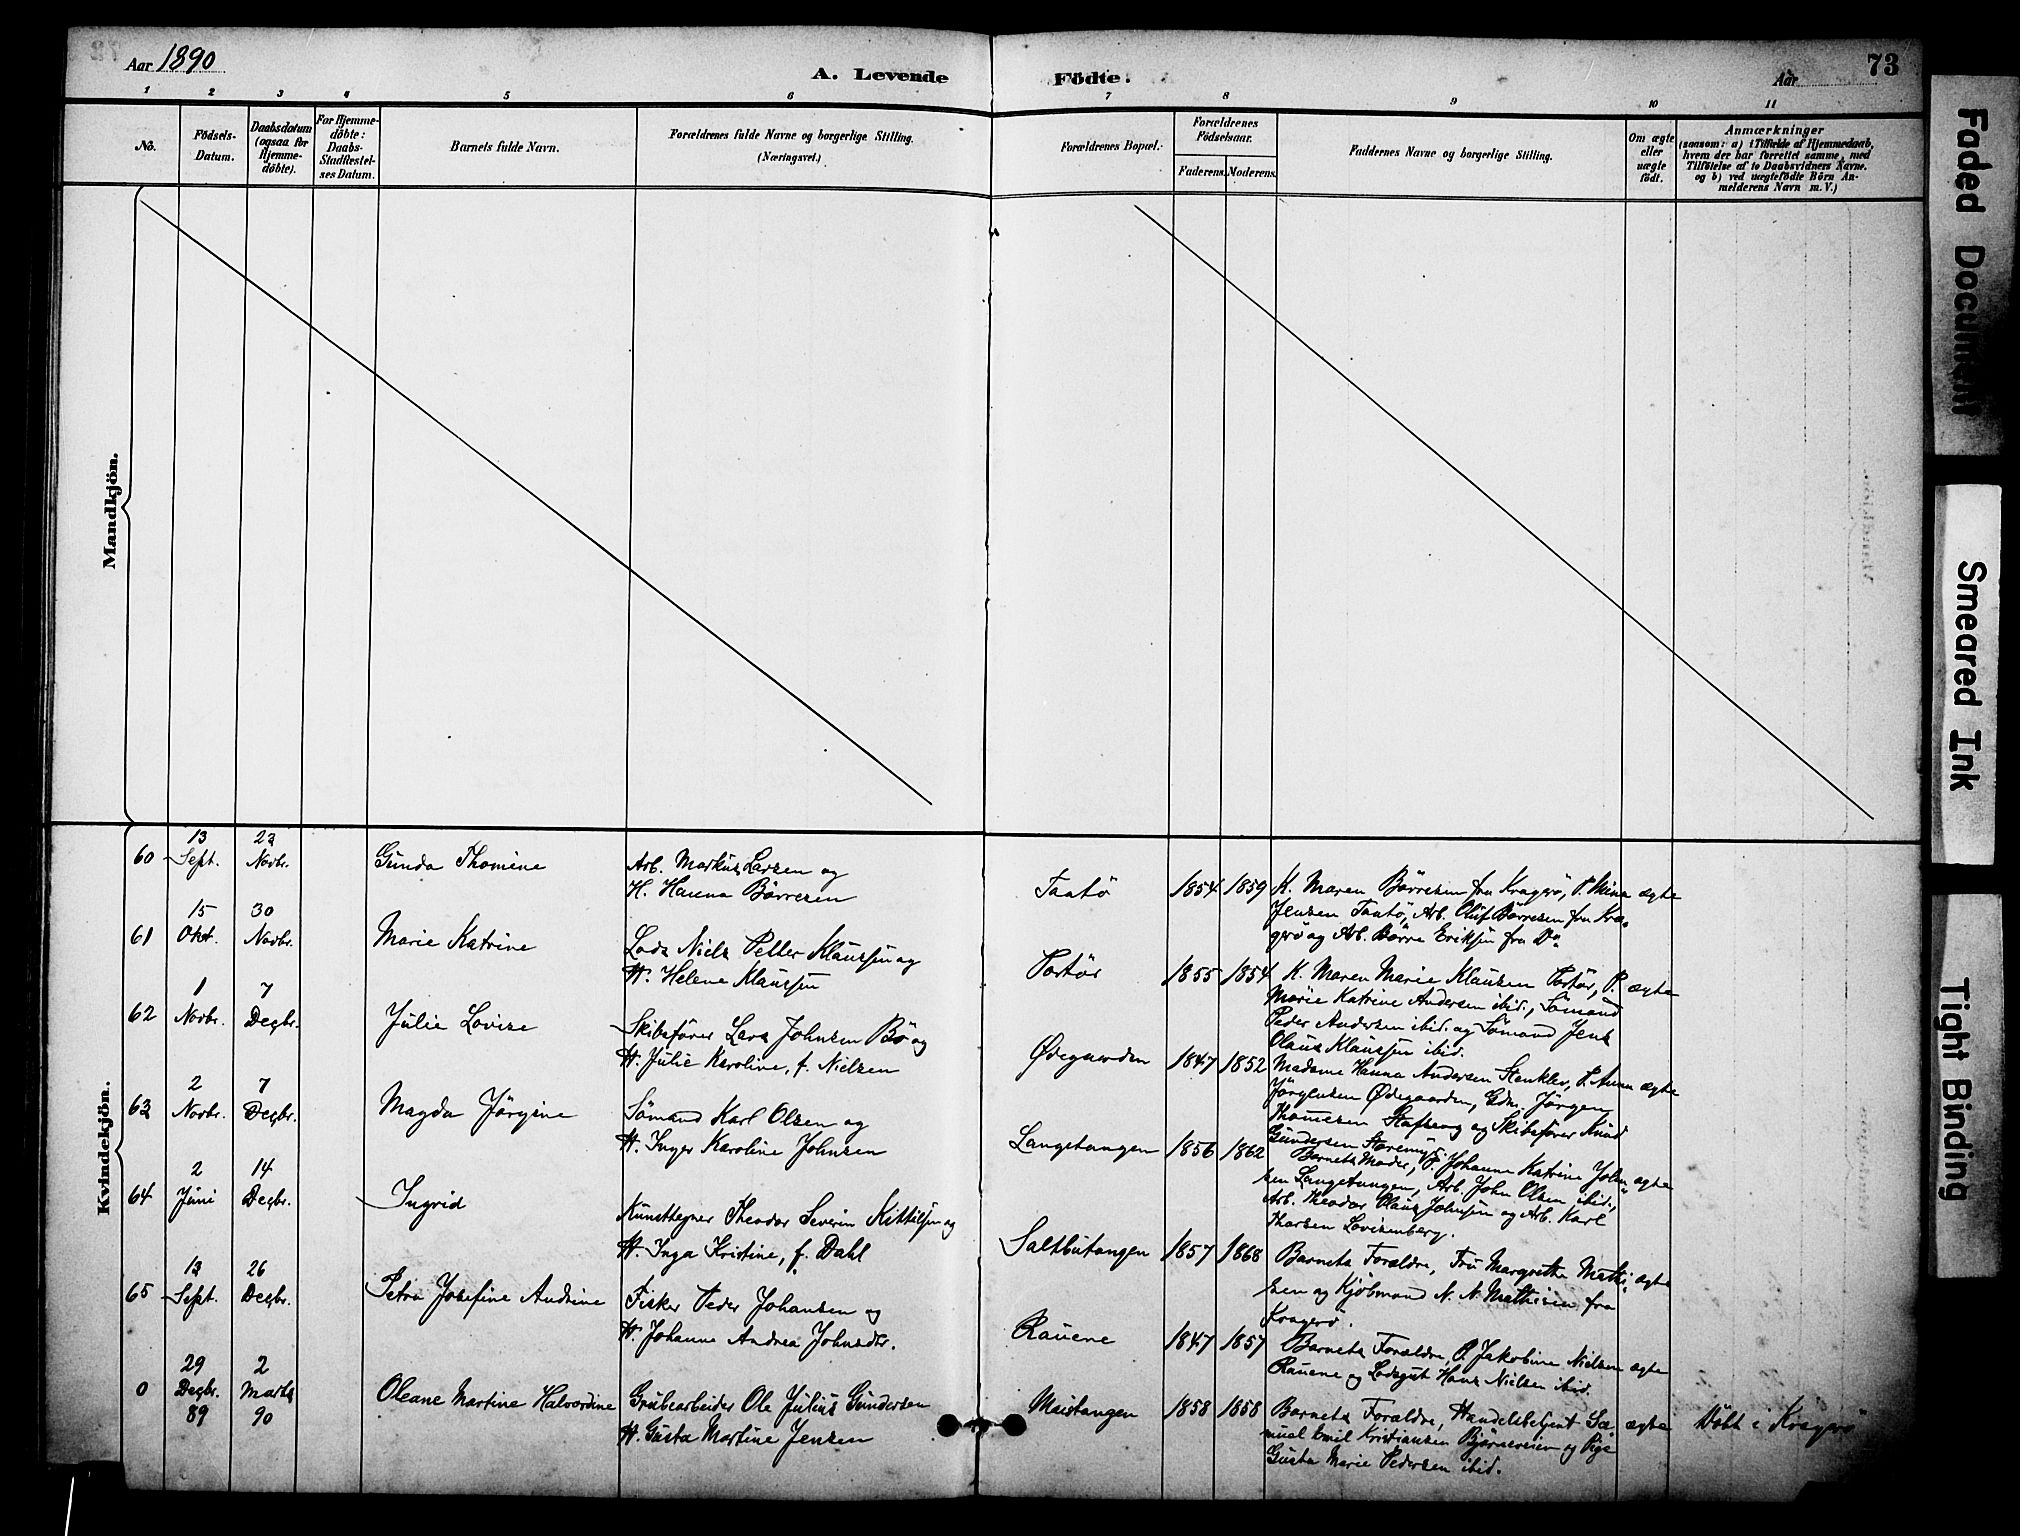 Aar 1890
A. Levende Födte.
Aar
73
1 2 3 4 5 6 7 8 9 10 11
No.
Födsels-
Datum.
Daabsdatum
(ogsaa for
Hjemme-
döbte).
For Hjemme-
döbte:
Daabs-
Stadfæstel-
ses Datum.
Barnets fulde Navn.
Forældrenes fulde Navne og borgerlige Stilling.
(Næringsvei.)
Forældrenes Bopæl.
Forældrenes
Födselsaar.
Faderens. Moderens.
Faddernes Navne og borgerlige Stilling.
Om ægte
eller
uægte
födt.
Anmærkninger
(saasom: a) i Tilfælde af Hjemmedaab,
hvem der har forrettet samme, med
Tilföielse af to Daabsvidners Navne.
og b) ved uægtefödte Börn An-
melderens Navn m. V.)
Mandkjön.
Kvindekjön.
60
13
Sept.
23
Novbr.
Gunda Thomine
Arb. Markus Larsen og
H. Hanna Börresen
Taatö
1854 1859
K. Maren Börresen fra Kragerö, P. Mina
Jensen Taatö, Arb. Oluf Börresen fra Kra-
gerö og Arb. Börre Eriksen fra Do
ægte
61
15
Okt.
30
Novbr.
Marie Katrine
Lods Niels Petter Klaussen og
H. Helene Klaussen
Portör
1855 1854
K. Maren Marie Klausen Portör, P.
Marie Katrine Andersen ibid., Sömand
Peder Andersen ibid. og Sömand Jens
Olaus Klaussen ibid.
ægte
62
1
Novbr.
7
Decbr.
Julie Lovise
Skibsförer Lars Johnsen Bö og
H. Julie Karoline, f. Nielsen
Ødegaarden
1847 1852
Madame Hanna Andersen Stenklev, P. Anna
Jörgensen Ødegaarden, Gdm. Jörgen
Thomesen Stafseng og Skibsförer Knud
Gundersen
ægte
63
2
Novbr.
7
Decbr.
Magda Jörgine
Sömand Karl Olsen og
H. Inger Karoline Johnsen
Langetangen
1856 1862
Barnets Moder, P. Johanne Katrine John-
sen Langetangen, Arb. John Olsen ibid.,
Arb. Theodor Olaus Johnsen og Arb. Karl
Thorsen Lovisenberg.
ægte
64
2
Juni
14
Decbr.
Ingrid
Kunsttegner Theodor Severin Kittilsen og
H. Inga Kristine, f. Dahl
Saltbutangen
1857 1868
Barnets Forældre, Fru Margrethe Mathi-
sen og Kjöbmand N. N. Mathisen fra
Kragerö.
ægte
65
13
Sept.
26
Decbr.
Petra Josefine Andrine
Fisker Peder Johansen og
H. Johanne Andrea Johnsdtr.
Rauene
1847 1857
Barnets Forældre, P. Jakobine Nielsen
Rauene og Lodsgut Hans Nielsen ibid.
ægte
0
29
Decbr.
89
2
Marts
90
Oleane Martine Halvordine
Grubearbeider Ole Julius Gundersen
H. Gusta Martine Jensen
Maistangen
1858 1858
Barnets Forældre, Handelsbetjent Sa-
muel Emil Kristiansen Björnsveien og Pige
Gusta Marie Pedersen ibid.
ægte
Döbt i Kragerö
Faded Document
Smeared Ink
Tight Binding